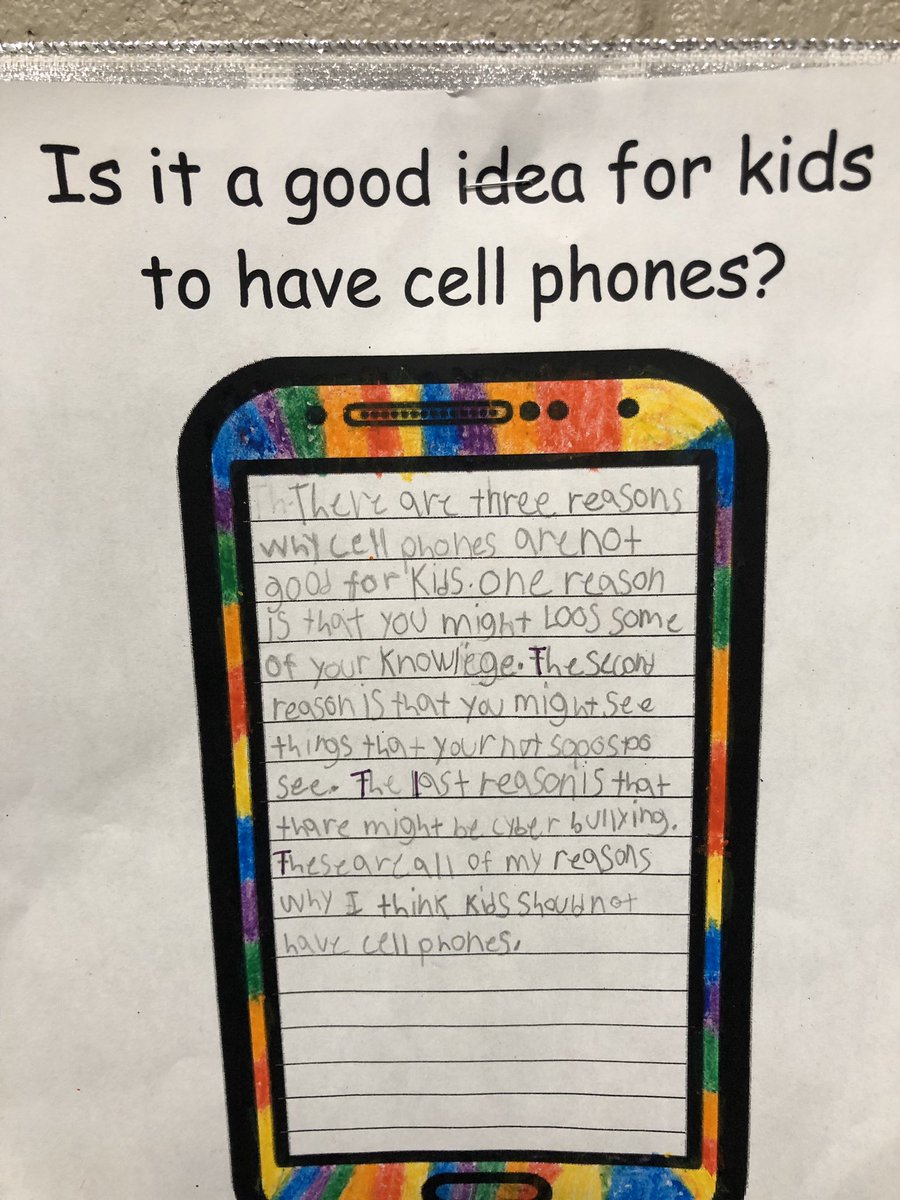 Is it a good idea for kids
to have cell phones?
There are three reasons
why cell phones are not
good for kids. One reason
is that you might Loos some
of your knowlege. The second
reason is that you might see
things that your not soposto
see. The last reason is that
thare might be cyber bullying.
These are all of my reasons
why I think kids should not
have cell phones.